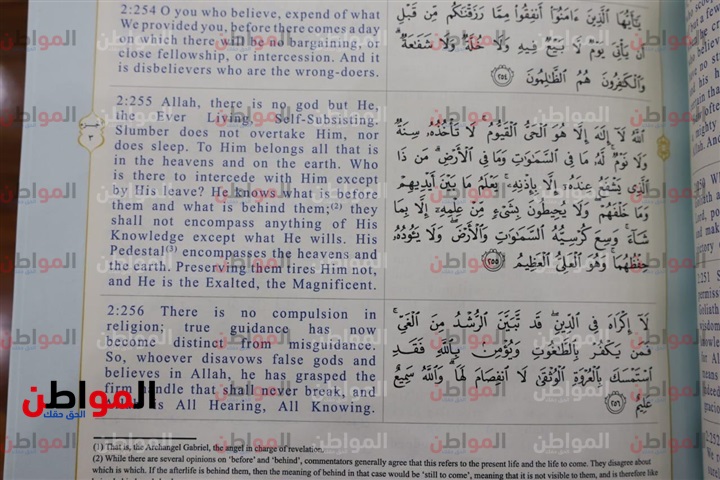 2:254 O you who believe, expend of what
We provided you, before there comes a day
on which there will be no bargaining, or
close fellowship, or intercession. And it
is disbelievers who are the wrong-doers.
يَٰٓأَيُّهَا ٱلَّذِينَ ءَامَنُوٓا۟ أَنفِقُوا۟ مِمَّا رَزَقْنَٰكُم مِّن قَبْلِ
أَن يَأْتِىَ يَوْمٌ لَّا بَيْعٌ فِيهِ وَلَا خُلَّةٌ وَلَا شَفَٰعَةٌ ۗ
وَٱلْكَٰفِرُونَ هُمُ ٱلظَّٰلِمُونَ ٢٥٤
2:255 Allah, there is no god but He,
the Ever Living, Self-Subsisting.
Slumber does not overtake Him, nor
does sleep. To Him belongs all that is
in the heavens and on the earth. Who
is there to intercede with Him except
by His leave? He knows what is before
them and what is behind them;(2) they
shall not encompass anything of His
Knowledge except what He wills. His
Pedestal(3) encompasses the heavens and
the earth. Preserving them tires Him not,
and He is the Exalted, the Magnificent.
ٱللَّهُ لَآ إِلَٰهَ إِلَّا هُوَ ٱلْحَىُّ ٱلْقَيُّومُ ۚ لَا تَأْخُذُهُۥ سِنَةٌ
وَلَا نَوْمٌ ۚ لَّهُۥ مَا فِى ٱلسَّمَٰوَٰتِ وَمَا فِى ٱلْأَرْضِ ۗ مَن ذَا
ٱلَّذِى يَشْفَعُ عِندَهُۥٓ إِلَّا بِإِذْنِهِۦ ۚ يَعْلَمُ مَا بَيْنَ أَيْدِيهِمْ
وَمَا خَلْفَهُمْ ۖ وَلَا يُحِيطُونَ بِشَىْءٍ مِّنْ عِلْمِهِۦٓ إِلَّا بِمَا
شَآءَ ۚ وَسِعَ كُرْسِيُّهُ ٱلسَّمَٰوَٰتِ وَٱلْأَرْضَ ۖ وَلَا يَـُٔودُهُۥ
حِفْظُهُمَا ۚ وَهُوَ ٱلْعَلِىُّ ٱلْعَظِيمُ ٢٥٥
2:256 There is no compulsion in
religion; true guidance has now
become distinct from misguidance.
So, whoever disavows false gods and
believes in Allah, he has grasped the
firm handle that shall never break, and
is All Hearing, All Knowing.
لَآ إِكْرَاهَ فِى ٱلدِّينِ ۖ قَد تَّبَيَّنَ ٱلرُّشْدُ مِنَ ٱلْغَىِّ ۚ
فَمَن يَكْفُرْ بِٱلطَّٰغُوتِ وَيُؤْمِنۢ بِٱللَّهِ فَقَدِ
ٱسْتَمْسَكَ بِٱلْعُرْوَةِ ٱلْوُثْقَىٰ لَا ٱنفِصَامَ لَهَا ۗ وَٱللَّهُ سَمِيعٌ
عَلِيمٌ ٢٥٦
(1) That is, the Archangel Gabriel, the angel in charge of revelation.
(2) While there are several opinions on 'before' and 'behind', commentators generally agree that this refers to the present life and the life to come. They disagree about
which is which. If the afterlife is behind them, then the meaning of behind in that case would be 'still to come', meaning that it is not visible to them, and is therefore like
المواطن
الحق حقك